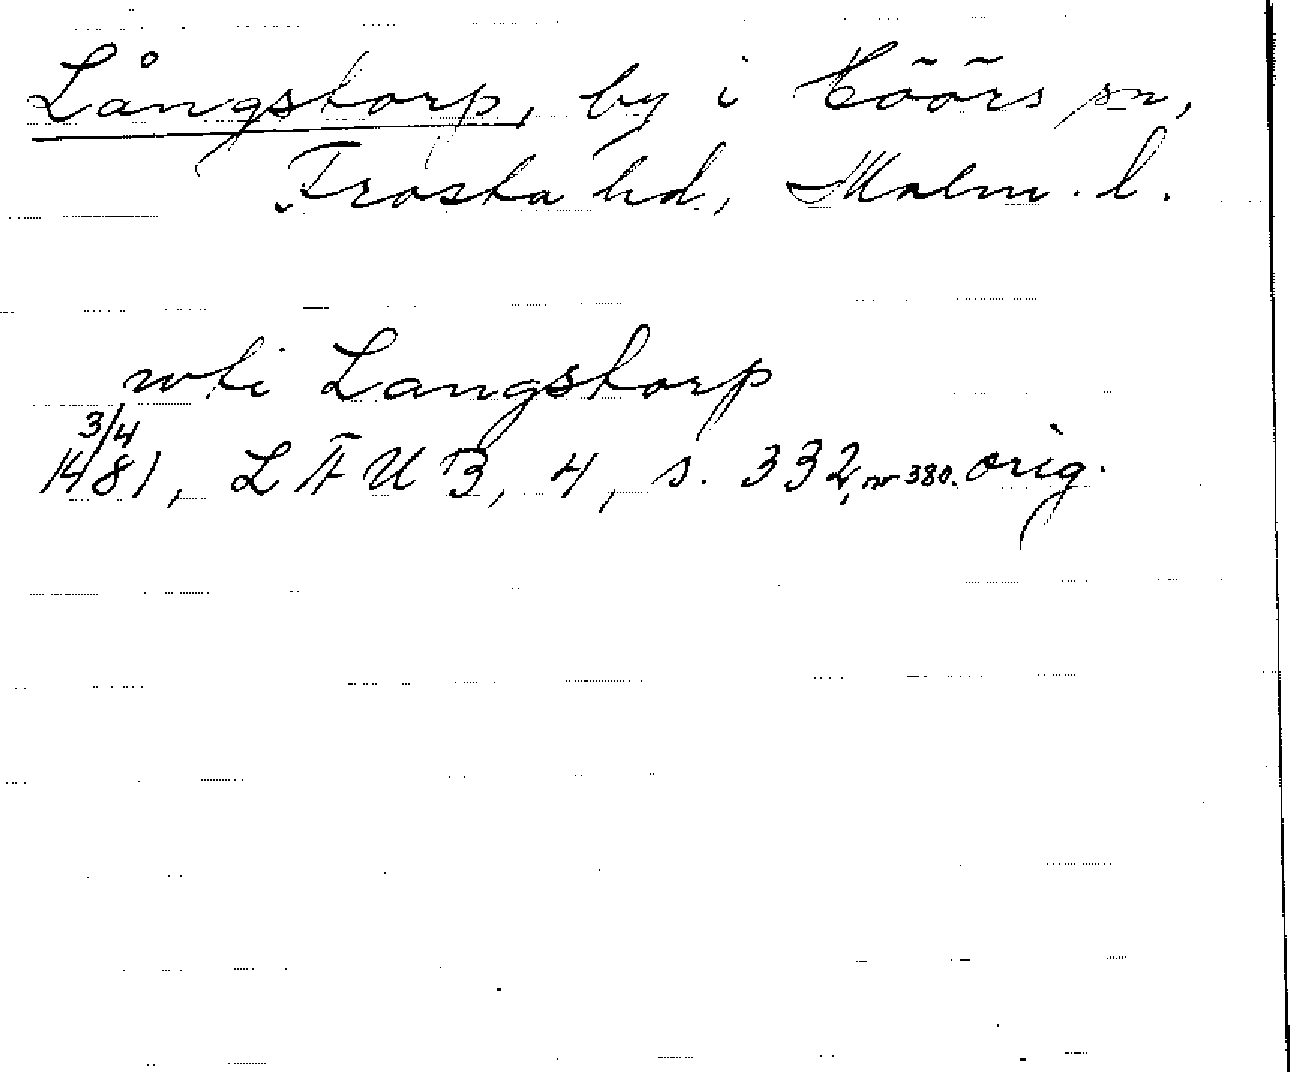 Långstorp, by i Höörs sn,
Frosta hd, Malm. l.
wti Langstorp
3/4
1481, LÄUB, 4, s. 332, nr 380. orig.